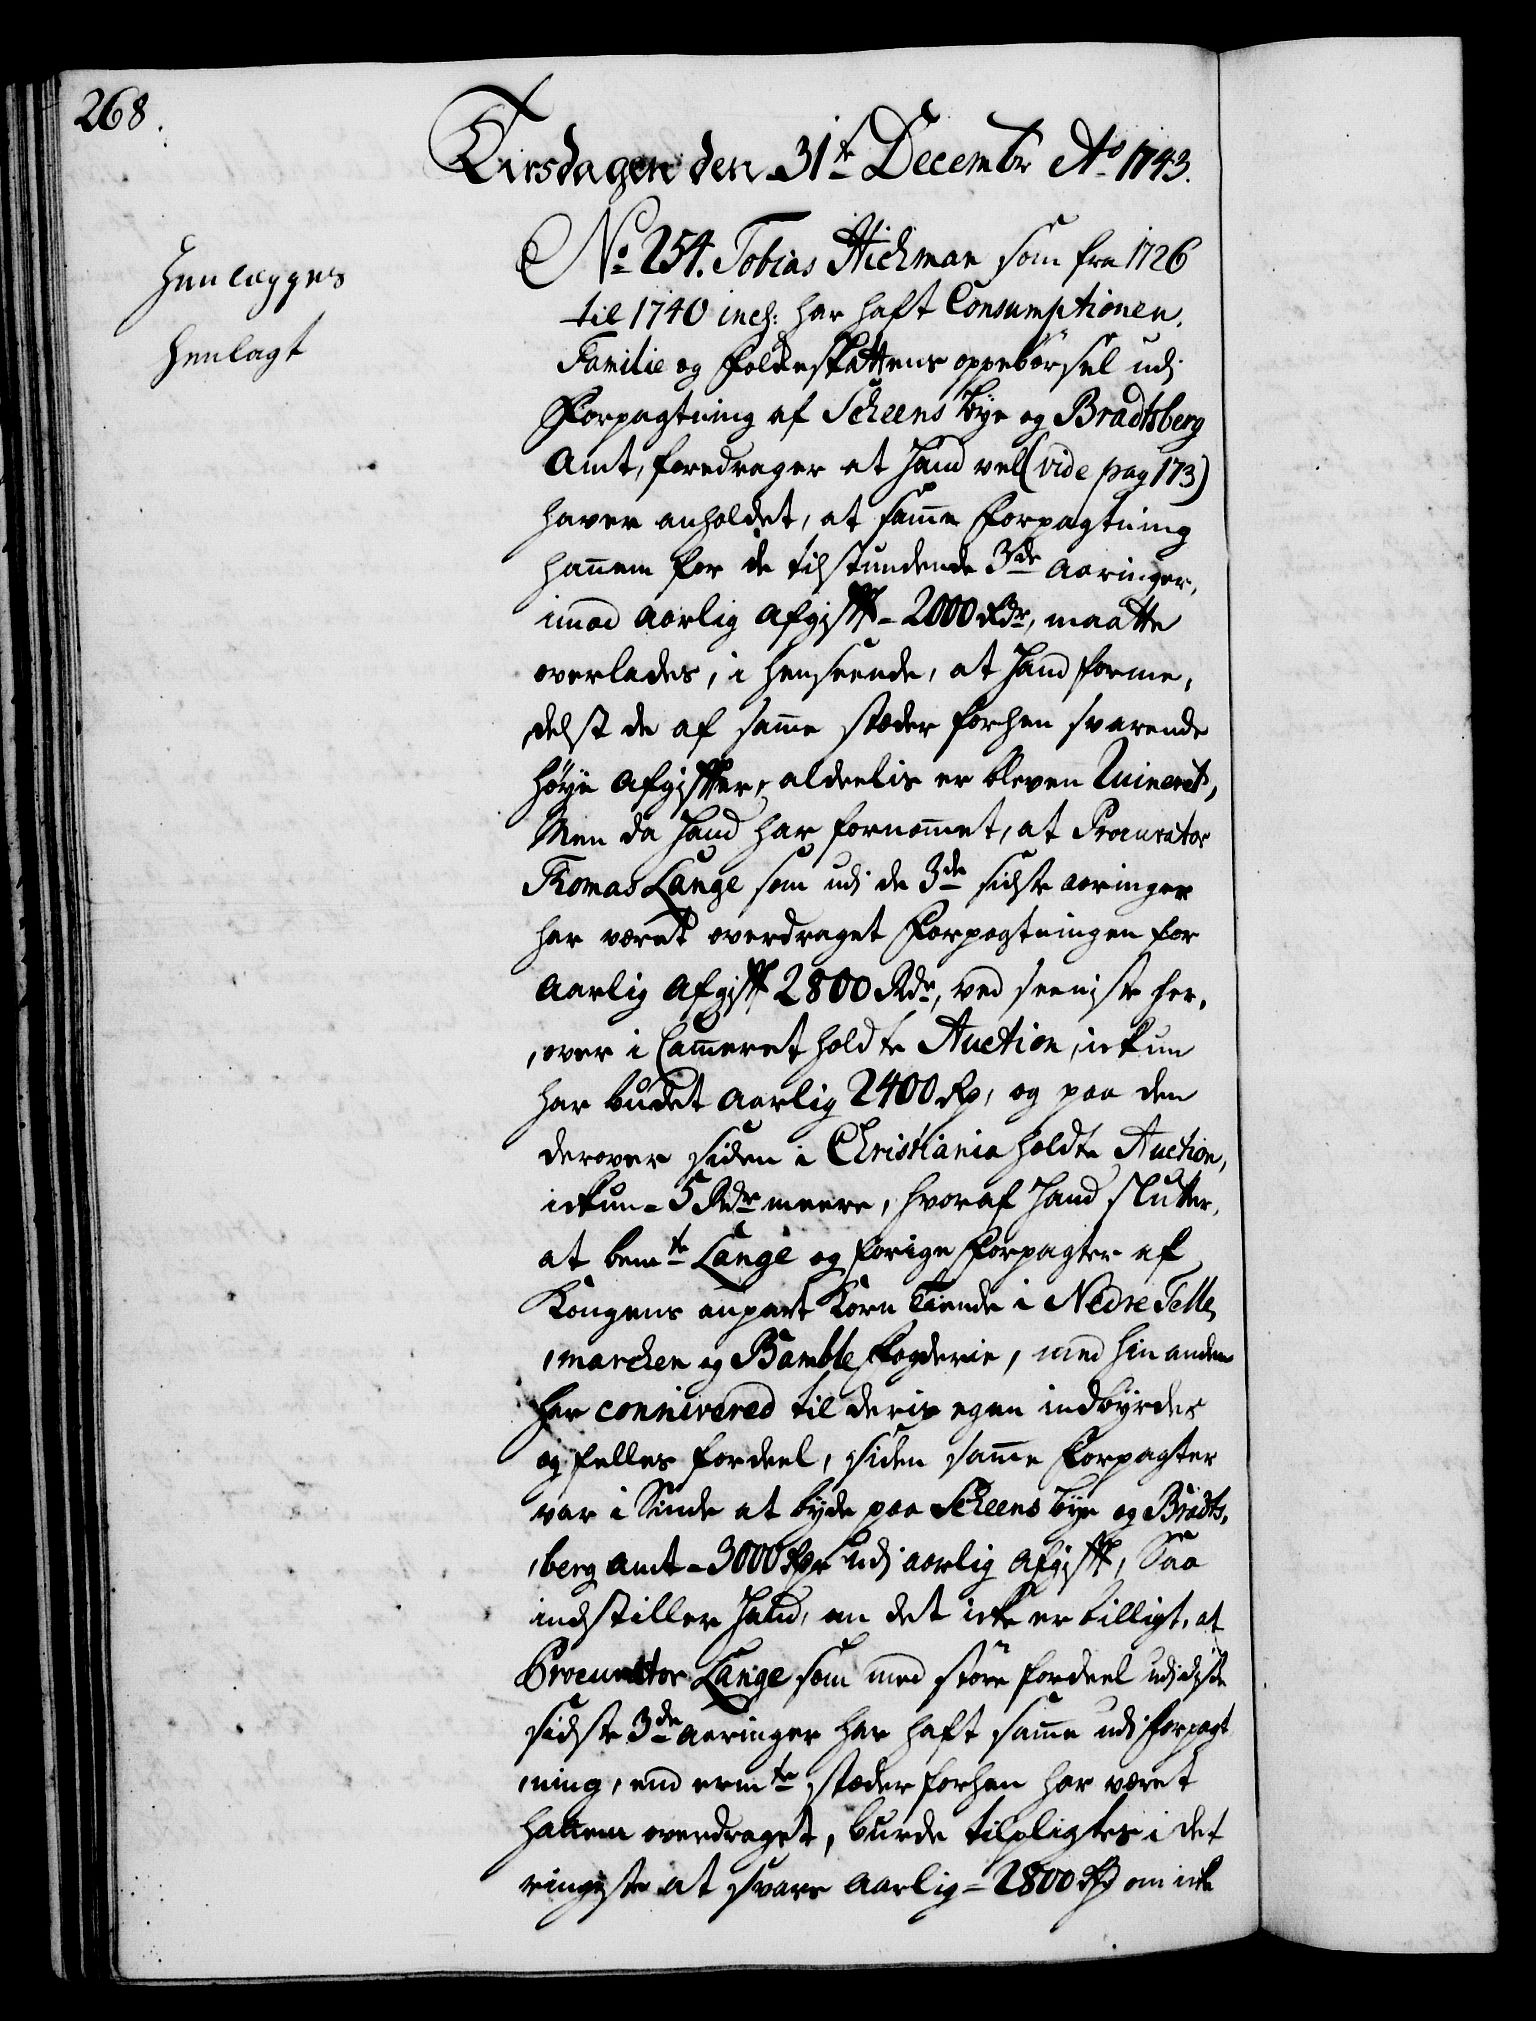 268.
Tirsdagen den 31te Decembr Ao 1743.
Henlægges
Henlagt
No 254. Tobias Hickman som fra 1726
til 1740 incl: har haft Consumptionen,
Familie og Folkeskattens oppebørsel udj
Forpagtning af Scheens Bye og Bradtsberg
Amt, foredrager at Hand vel (vide pag 173)
haver anholdet, at samme Forpagtning
hannem for de tilstundende 3de Aaringer,
imod Aarlig Afgifft - 2000 Rdr, maatte
overlades, i henseende, at Hand forme,
delst de af samme stæder forhen svarende
høye Afgiffter, aldeelis er bleven Ruineret,
Men da Hand har fornommet, at Procurator
Thomas Lange som udj de 3de sidste aaringer
har været overdraget Forpagtningen for
Aarlig Afgifft 2800 Rdr, ved seeniste her,
,over i Cammeret holdte Auction, ickun
har budet Aarlig 2400 Rd, og paa den
derover siden i Christiania holdte Auction,
ickun - 5 Rdr meere, hvoraf Hand slutter,
at bemte Lange og forige Forpagter af
Kongens anpart Korn Tiende i Nedre Telle,
,marchen og Bamble Fogderie, med hin anden
har connivered til deris egen indbyrdes
og felles fordeel, siden samme Forpagter
var i Sinde at byde paa Scheens bye og Bradts,
,berg Amt - 3000 Rdr udj aarlig Afgifft, Saa
indstiller Hand, om det icke er billigt, at
Procurator Lange som med større fordeel udj disse
sidste 3de Aaringer har haft samme udj Forpagt
,ning, end ermte stæder forhen har været
hannem overdraget, burde tilpligtes i det
ringeste at svare Aarlig - 2800 Rd om icke